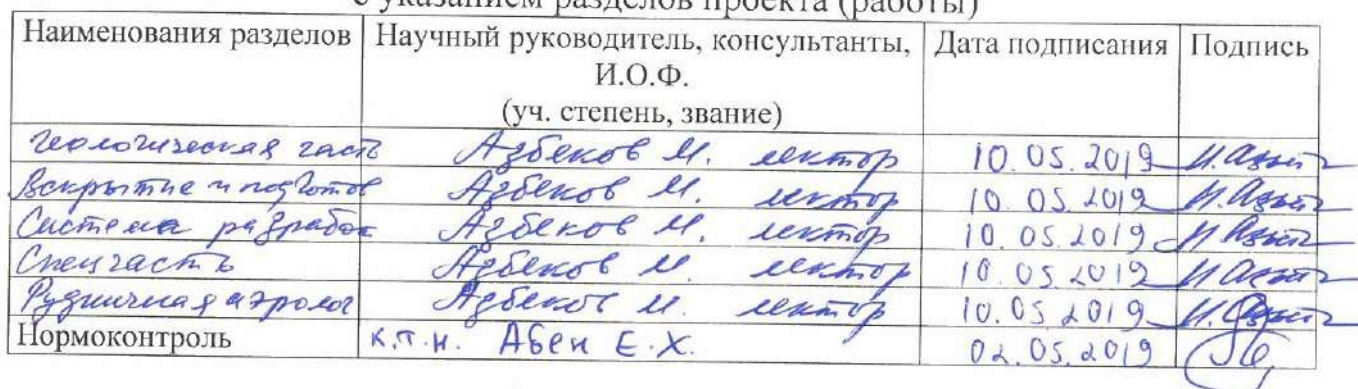 с указанием разделов проекта (работы)
Наименования разделов Научный руководитель, консультанты, Дата подписания Подпись
И.О.Ф.
(уч. степень, звание)
Геологическая часть Азбеков М. лектор 10.05.2019
Вскрытие и подготов Азбеков М. лектор 10.05.2019
Система разработк Азбеков М. лектор 10.05.2019
Спецчасть Азбеков М. лектор 10.05.2019
Рудничная аэролог Азбеков М. лектор 10.05.2019
Нормоконтроль К.т.н. Абен Е.Х. 02.05.2019